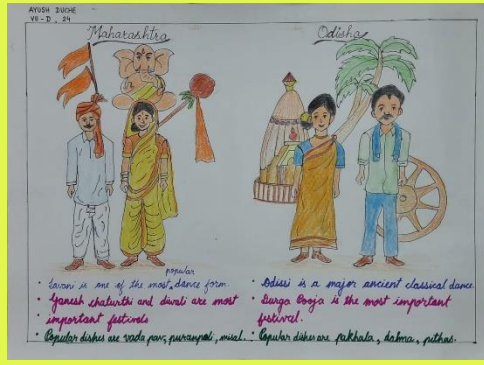 AYUSH DUCHE
VII - D, 24
Maharashtra
Odisha
popular
• Lavani is one of the most dance form.
• Ganesh chaturthi and diwali are most
• important festivals
• Popular dishes are vada pav, puranpoli, misal.
• Odissi is a major ancient classical dance.
• Durga Pooja is the most important
festival.
• Popular dishes are pakhala, dalma, pithas.